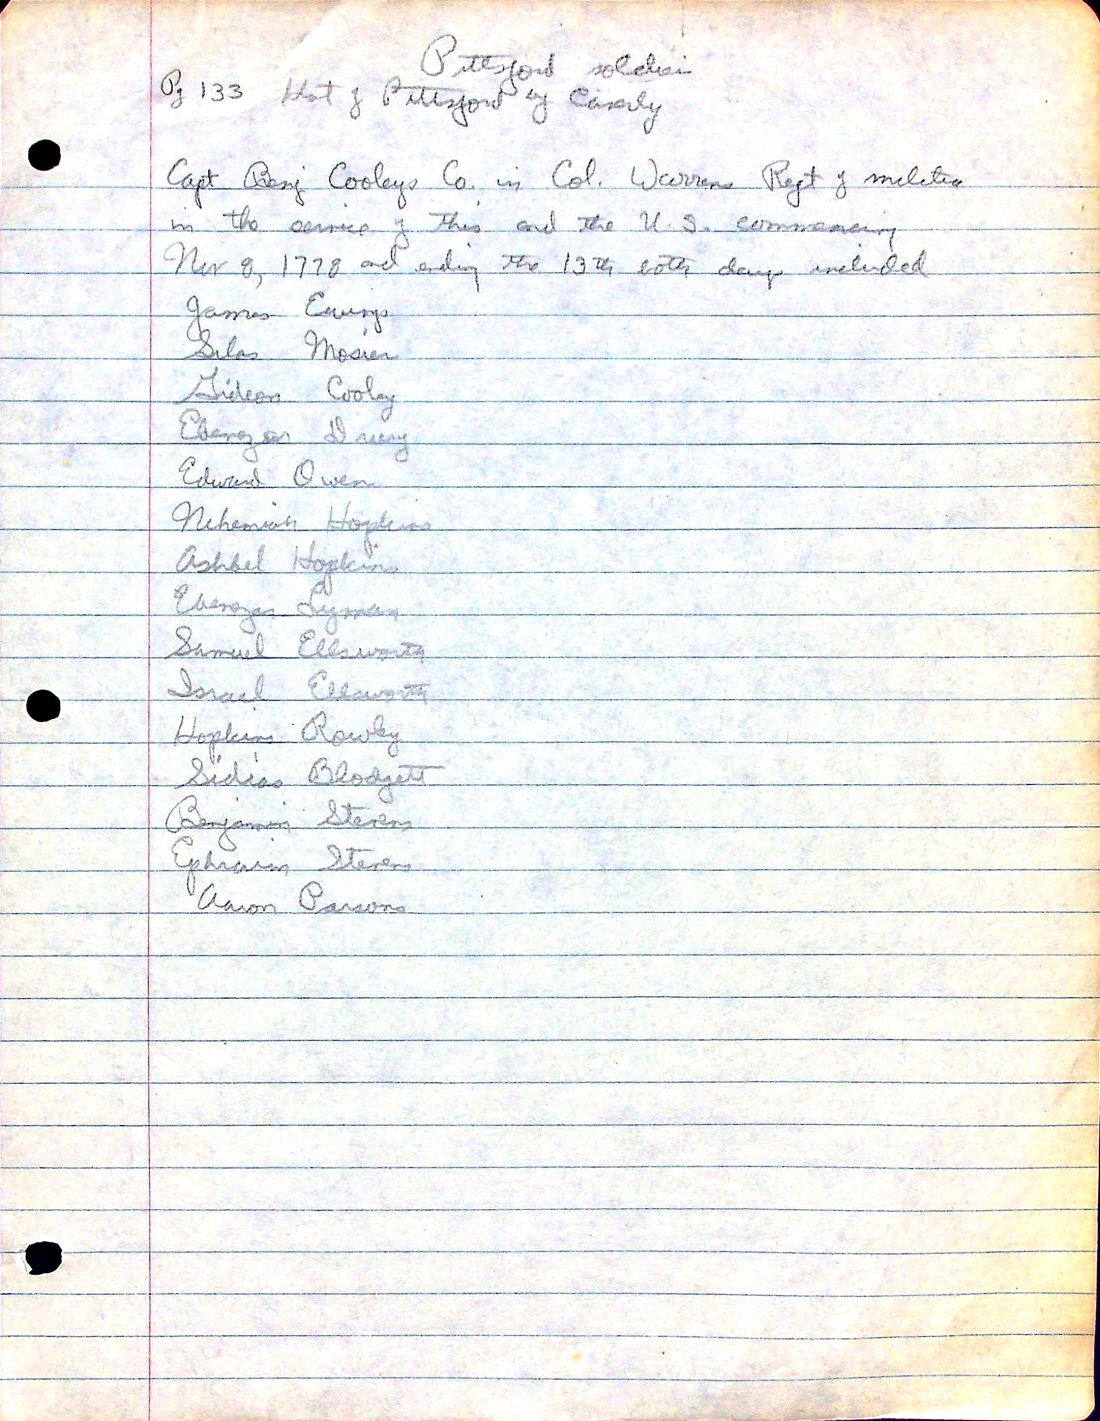 Pittsford soldiers
Pg 133 Hist of Pittsford by Caverly
Capt Benj Cooleys Co. in Col. Warrens Regt of militia
in the service of this and the U.S. commencing
Nov 8, 1778 and ending the 13th both days included
James Ewings
Silas Mosier
Gideon Cooley
Ebenezer Drury
Edward Owen
Nehemiah Hopkins
Ashbel Hopkins
Ebenezer Lyman
Samuel Ellsworth
Israel Ellsworth
Hopkins Rowley
Sidias Blodgett
Benjamin Stevens
Ephraim Stevens
Aaron Parsons